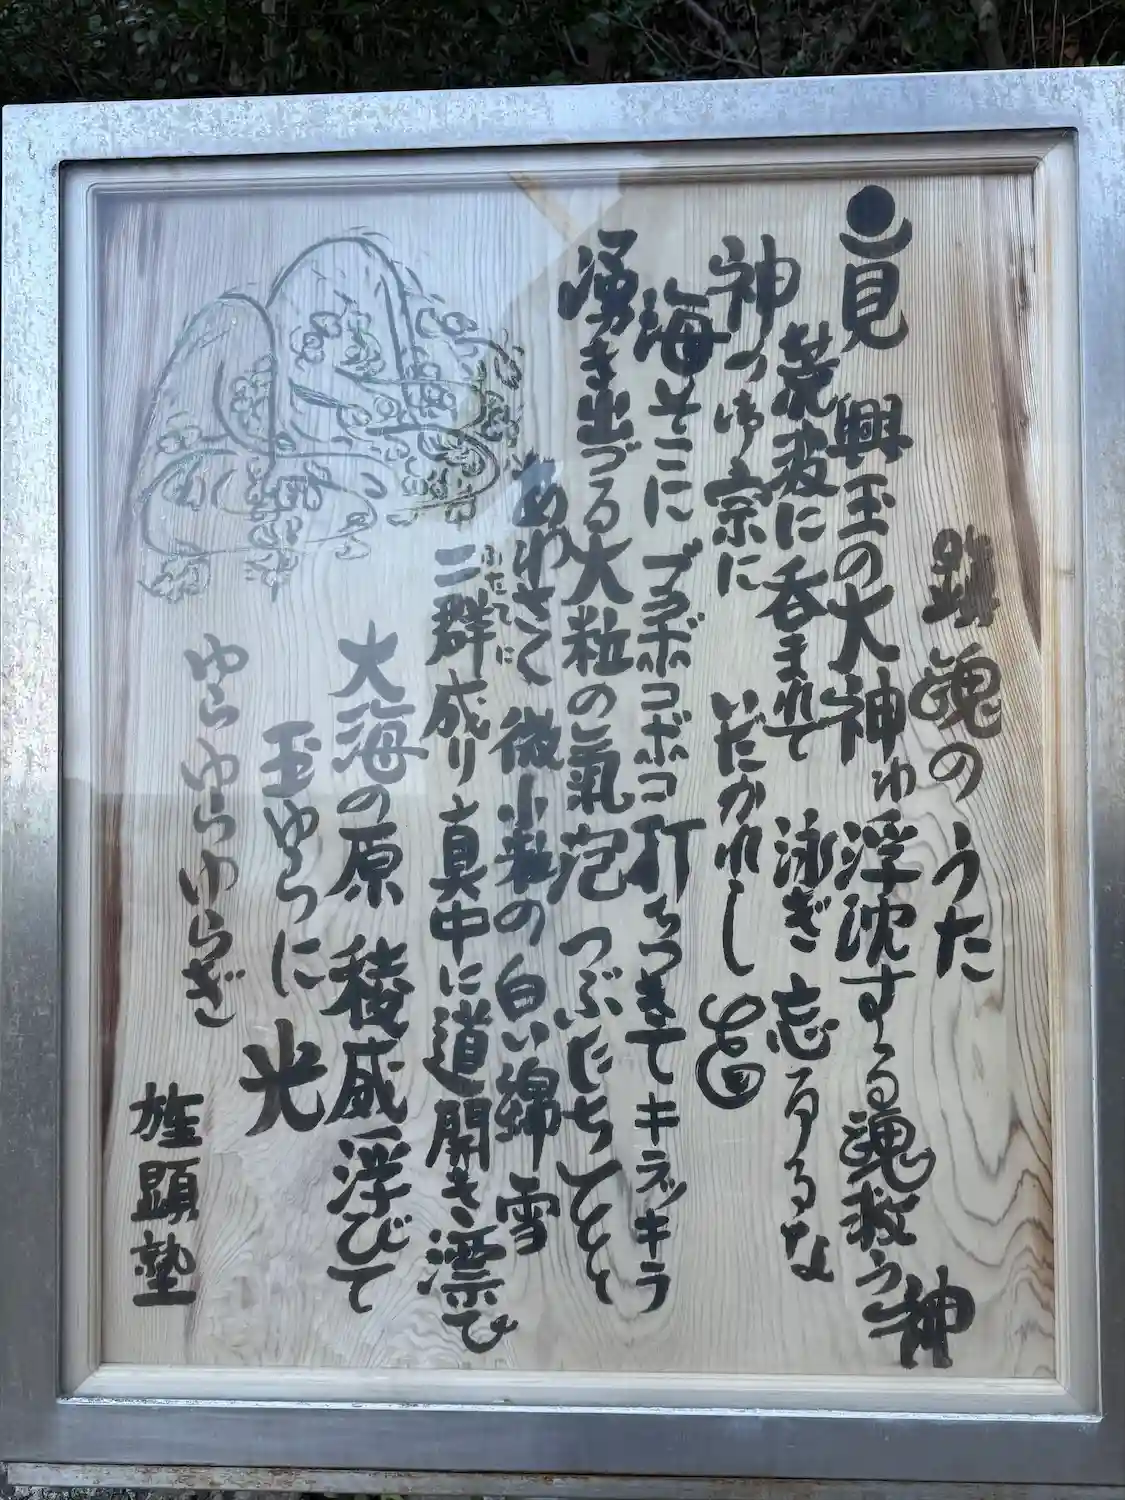 鎮魂のうた
見 興玉の大神ゎ浮沈する魂救う神
荒波に呑まれて 泳ぎ 忘るるな
神つゆ宗に いだかれし
海そこに ブクボコボコ打ちつきてキラッキラ
湧き出づる大粒の氣泡 つぶだちしてと
あわさくて 微小粒の白い綿雪
二群成り真中に道開き漂ひ
ふたてに
大海の原 稜威浮びて
玉ゆらに 光
ゆらゆらゆらぎ
旌顕塾